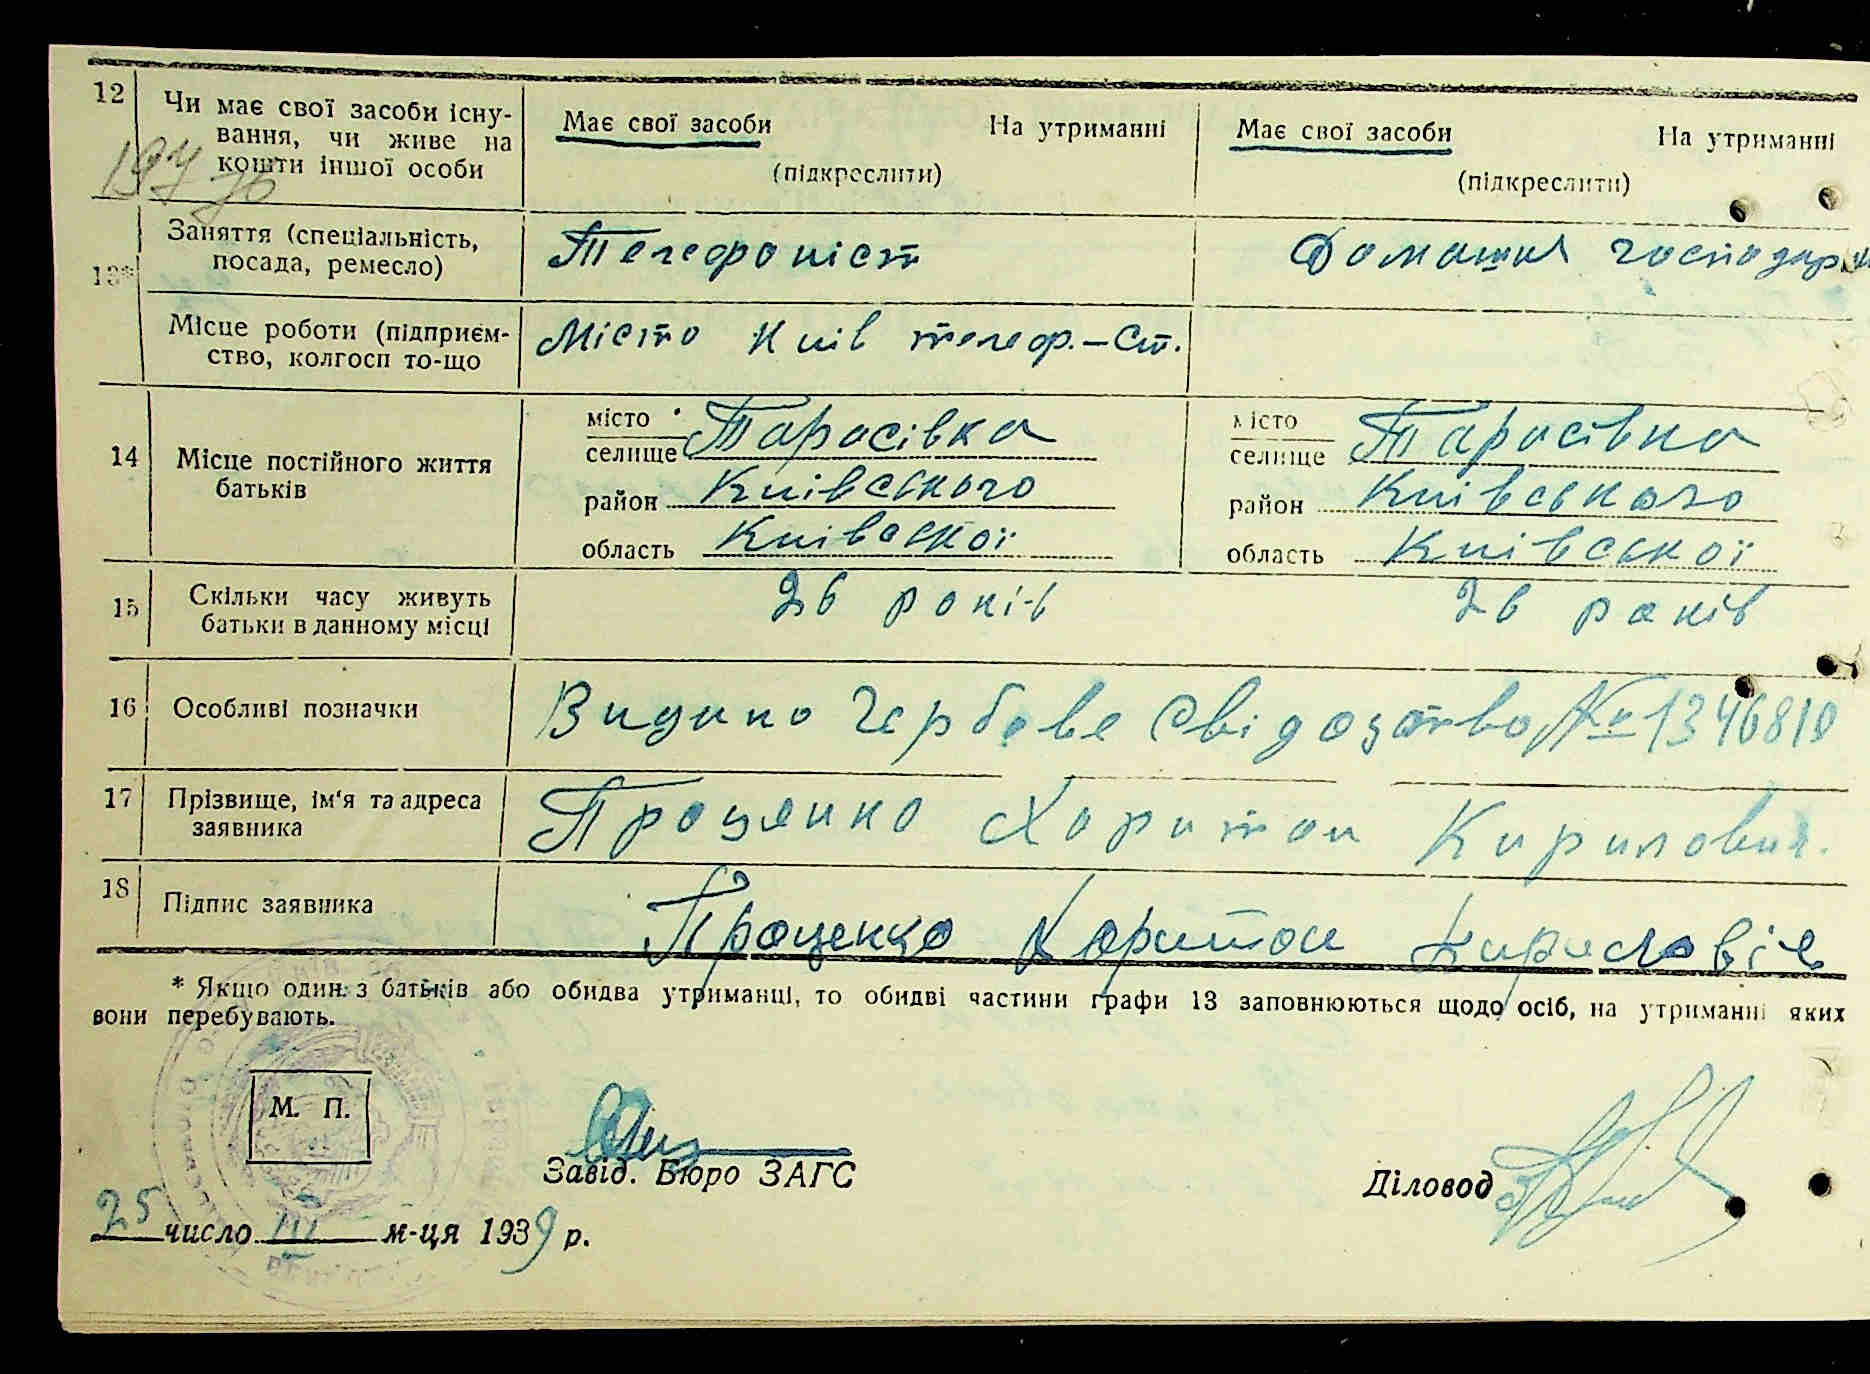 12 Чи має свої засоби існу-
вання, чи живе на
кошти іншої особи
Має свої засоби На утриманні
(підкреслити)
Має свої засоби На утриманні
(підкреслити)
13*
Заняття (спеціальність,
посада, ремесло)
Телефоніст
Домашня господарк
Місце роботи (підприєм-
ство, колгосп то-що
Місто Київ телеф.-Ст.
14 Місце постійного життя
батьків
місто
селище Тарасівка
район Київського
область Київської
місто
селище Тарасівка
район Київського
область Київської
15 Скільки часу живуть
батьки в данному місці
26 років
26 років
16 Особливі позначки
Видано Гербове свідоцтво № 1346810
17 Прізвище, ім'я та адреса
заявника
Проценко Харитон Кирилович.
18 Підпис заявника
Проценко Харитон Кириловіч
* Якщо один з батьків або обидва утриманці, то обидві частини графи 13 заповнюються щодо осіб, на утриманні яких
вони перебувають.
М. П.
Завід. Бюро ЗАГС
Діловод
25 число III м-ця 1939 р.